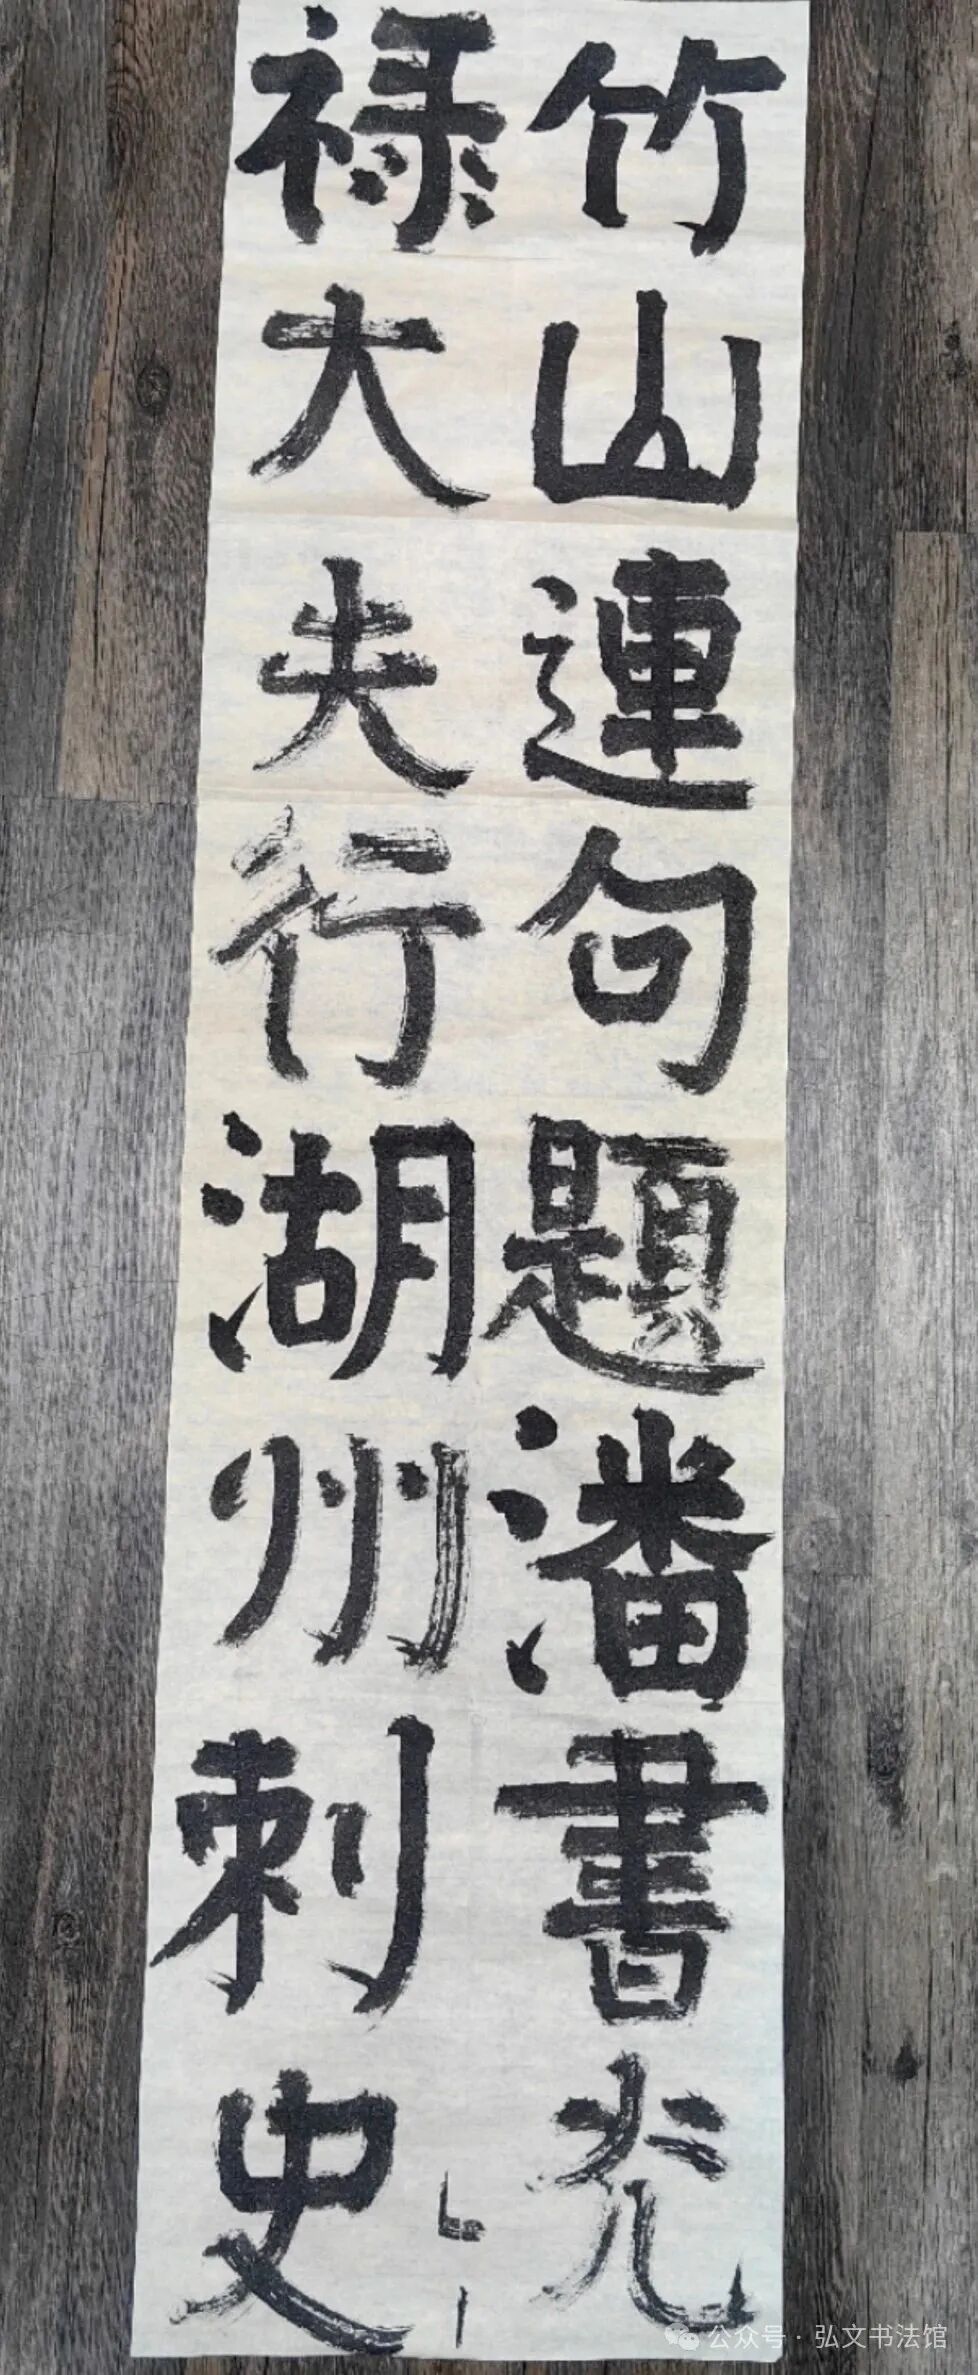 竹山連句題潘書光
禄大夫行湖州刺史
公众号·弘文书法馆